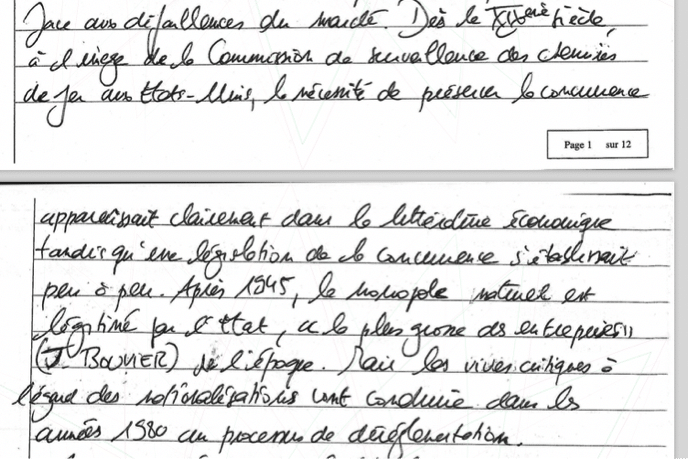 face aux défaillances du marché. Dès le XIXème siècle,
à l'image de la Commission de surveillance des chemins
de fer aux États-Unis, la nécessité de préserver la concurrence
Page 1 sur 12
apparaissait clairement dans la littérature économique
tandis qu'une législation de la concurrence s'établissait
peu à peu. Après 1945, le monopole naturel est
légitimé par l'État, "la plus grosse des entreprises"
(J. BOUVIER) de l'époque. Mais les vives critiques à
l'égard des nationalisations vont conduire dans les
années 1980 au processus de déréglementation.